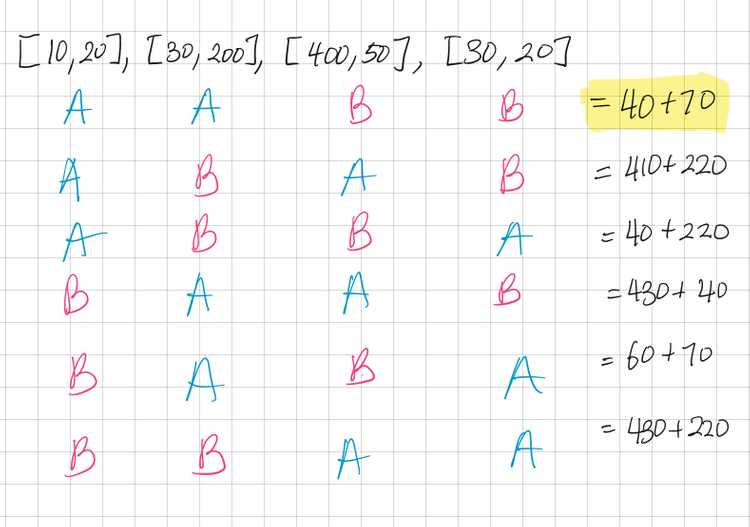 [10,20], [30,200], [400,50], [30,20]
A A B B = 40+70
A B A B = 410+220
A B B A = 40+220
B A A B = 430+40
B A B A = 60+70
B B A A = 430+220